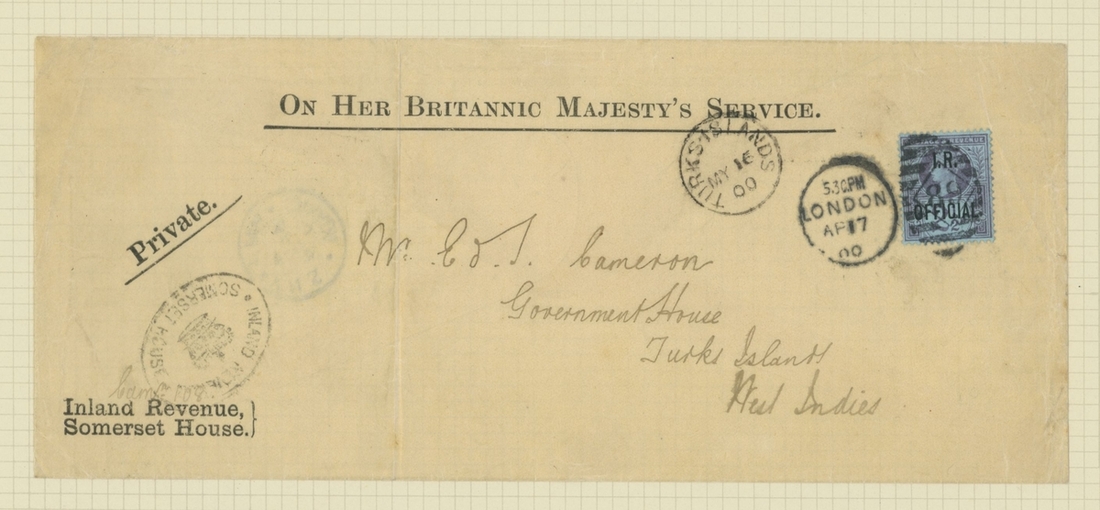 On Her Britannic Majesty's Service.
TURKS ISLANDS
MY 16
00
5.30PM
LONDON
AP 17
00
REVENUE
I.R.
OFFICIAL.
Private.
Mr. E d. S. Cameron
Government House
Turks Islands
West Indies
INLAND REVENUE
SOMERSET HOUSE
Inland Revenue,
Somerset House.